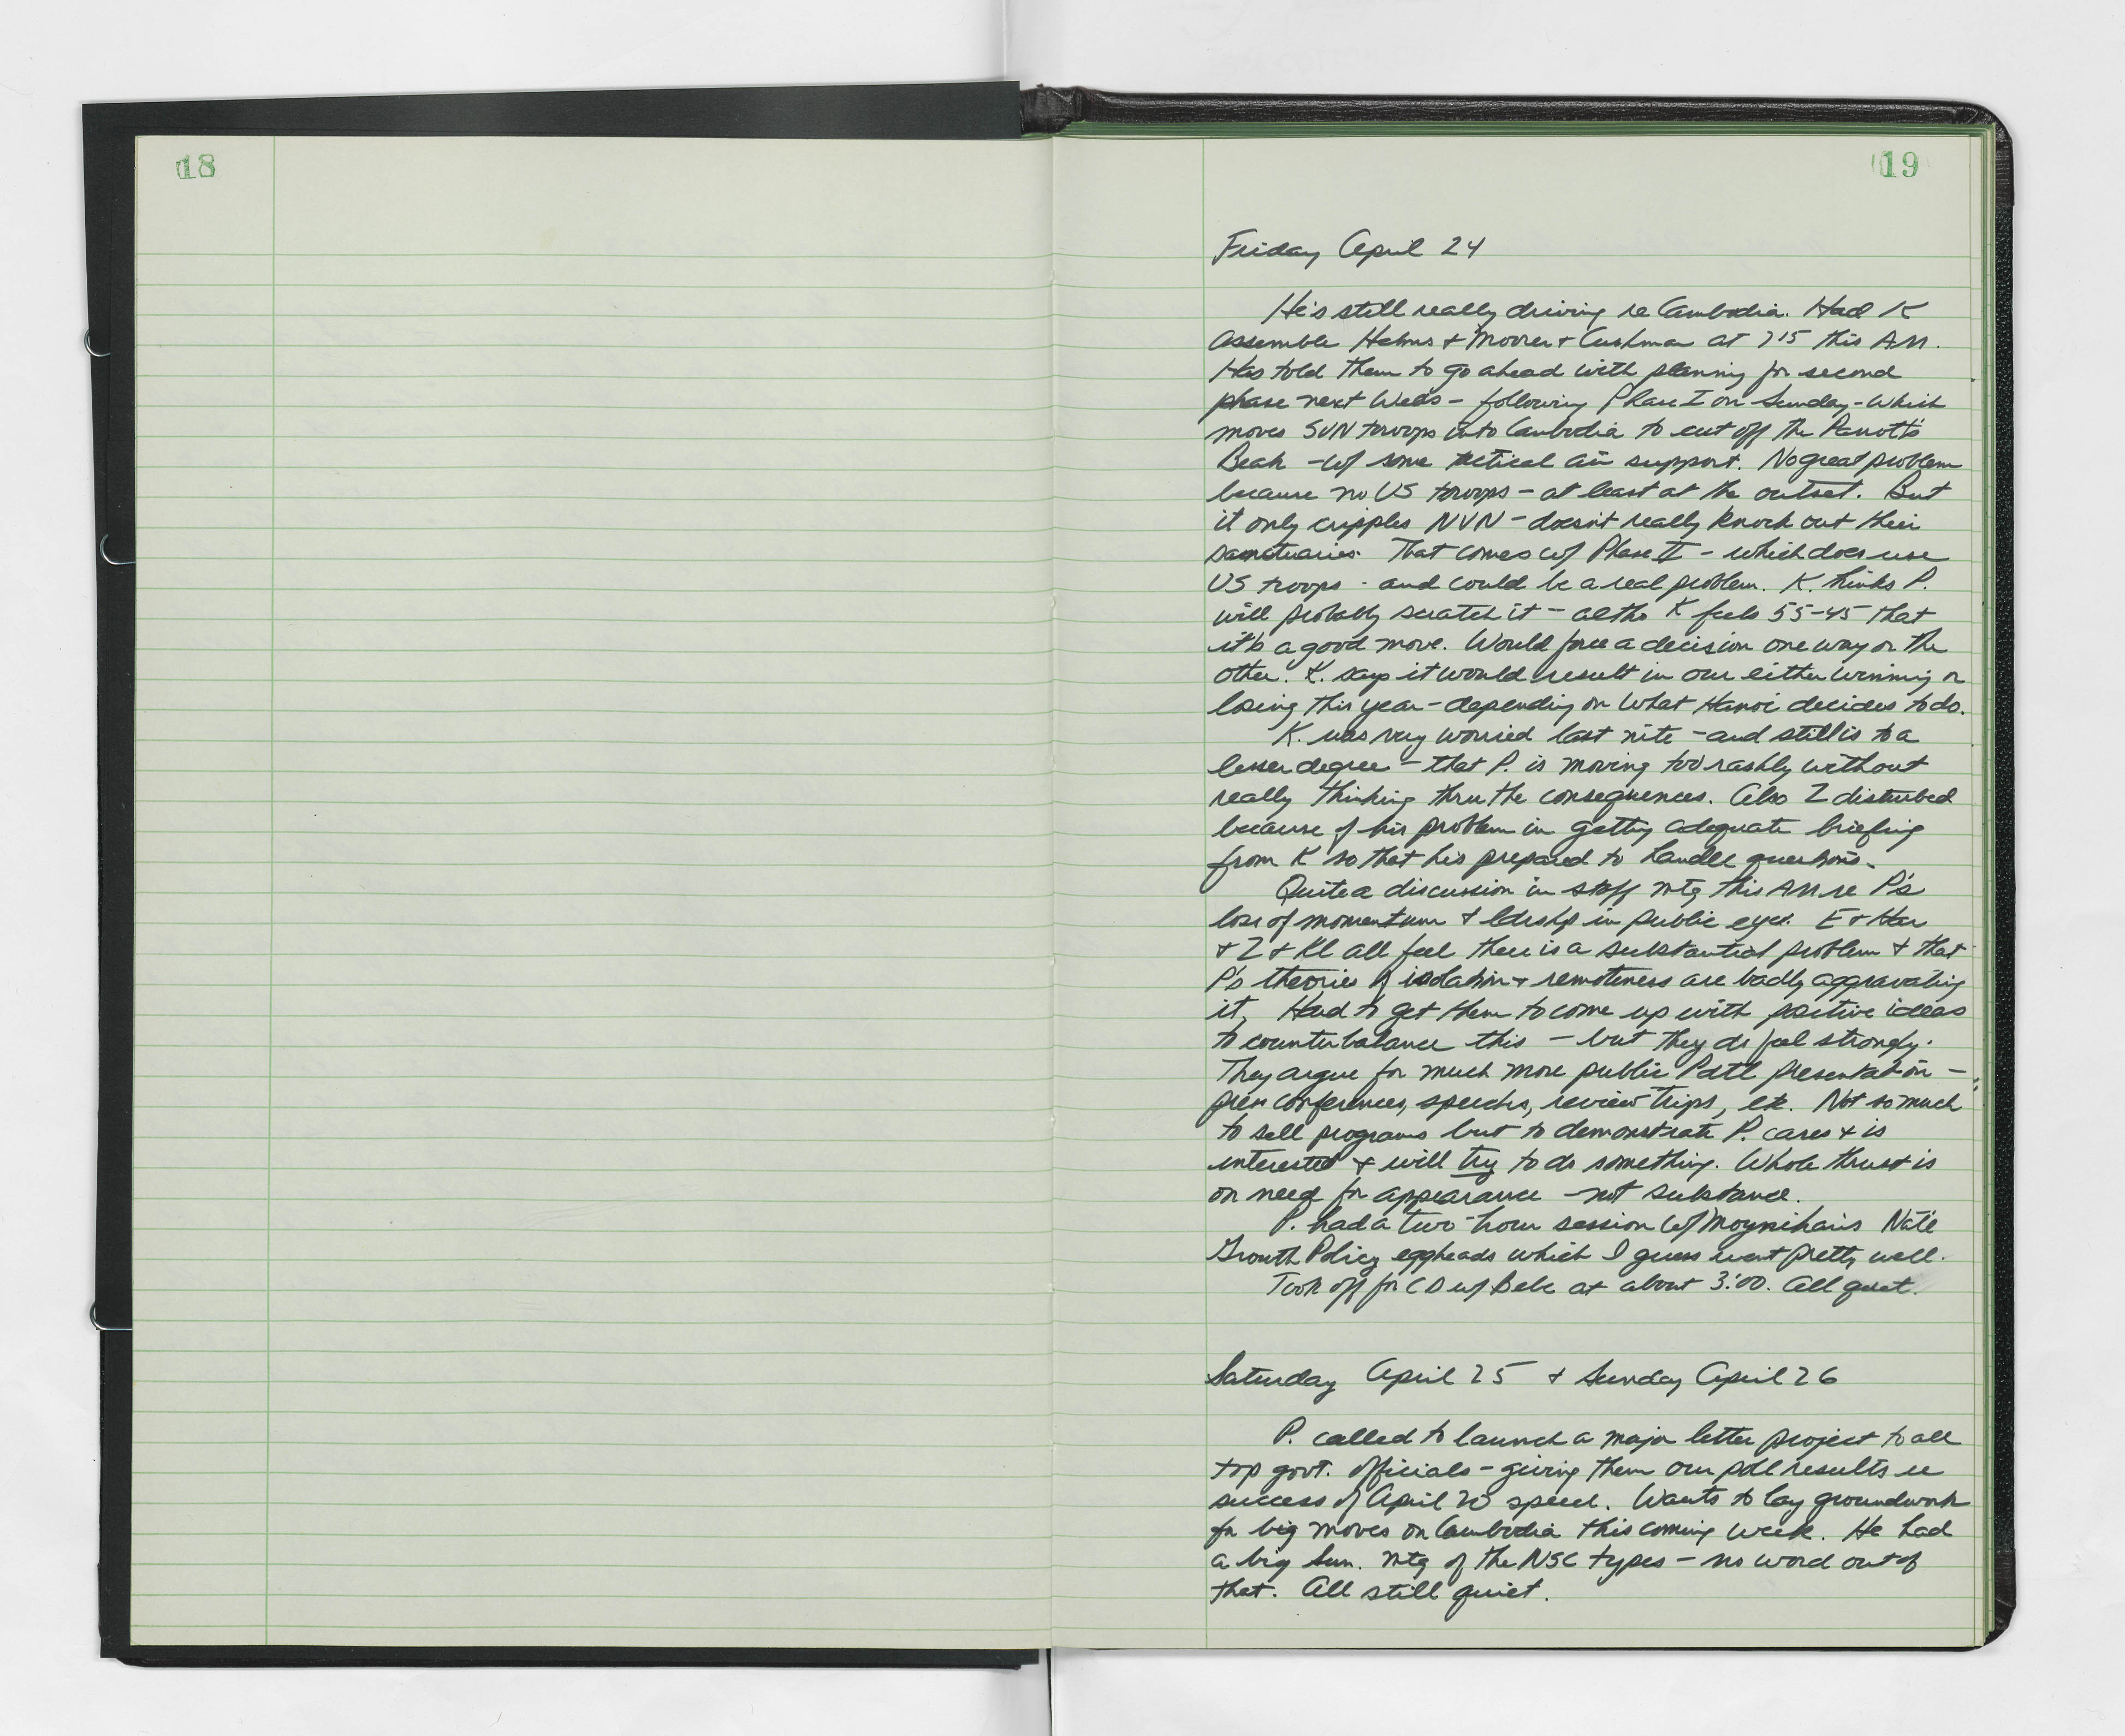 18
19
Friday April 24
He's still really driving re Cambodia. Had K
assemble Helms + Moorer + Cushman at 715 this AM.
Has told them to go ahead with planning for second
phase next Weds - following Phase I on Sunday - which
moves SVN troops into Cambodia to cut off the Parrott's
Beak - w/ some tactical air support. No great problem
because no US troops - at least at the outset. But
it only cripples NVN - doesn't really knock out their
sanctuaries. That comes w/ Phase II - which does use
US troops - and could be a real problem. K. thinks P.
will probably scratch it - altho K feels 55-45 that
it's a good move. Would force a decision one way or the
other. K. says it would result in our either winning or
losing this year - depending on what Hanoi decides to do.
K. was very worried last nite - and still is to a
lesser degree - that P. is moving too rashly without
really thinking thru the consequences. Also Z disturbed
because of his problem in getting adequate briefing
from K so that he's prepared to handle questions.
Quite a discussion in staff mtg this AM re P's
loss of momentum + ldrshp in public eyes. E + Har
+ Z + Kl all feel there is a substantial problem + that
P's theories of isolation + remoteness are badly aggravating
it. Had to get them to come up with positive ideas
to counterbalance this - but they do feel strongly.
They argue for much more public Pdtl presentation -
press conferences, speeches, review trips, etc. Not so much
to sell programs but to demonstrate P. cares + is
interested + will try to do something. Whole thrust is
on need for appearance - not substance.
P. had a two-hour session w/ Moynihan's Nat'l
Growth Policy eggheads which I guess went pretty well.
Took off for CD w/ Bebe at about 3:00. All quiet.
Saturday April 25 + Sunday April 26
P. called to launch a major letter project to all
top govt. officials - giving them our poll results re
success of April 20 speech. Wants to lay groundwork
for big moves on Cambodia this coming week. He had
a big Sun. mtg of the NSC types - no word out of
that. All still quiet.